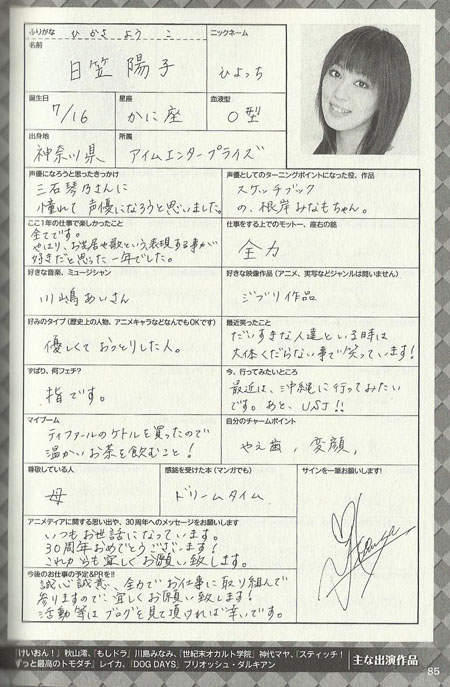 ふりがな
ひかさ ようこ
ニックネーム
名前
日笠 陽子
ひよっち
誕生日
星座
血液型
7/16
かに座
O型
出身地
所属
神奈川県
アイムエンタープライズ
声優になろうと思ったきっかけ
声優としてのターニングポイントになった役、作品
三石琴乃さんに
憧れて声優になろうと思いました。
スケッチブック
の、根岸みなもちゃん。
ここ1年の仕事で楽しかったこと
仕事をする上でのモットー、座右の銘
全てです。
やはり、お芝居や歌という表現する事が
好きだと思った一年でした。
全力
好きな音楽、ミュージシャン
好きな映像作品(アニメ、実写などジャンルは問いません)
川嶋あいさん
ジブリ作品
好みのタイプ(歴史上の人物、アニメキャラなどなんでもOKです)
最近笑ったこと
優しくておっとりした人。
だいすきな人達といる時は
大体くだらない事で笑っています!
ずばり、何フェチ?
今、行ってみたいところ
指です。
最近は、沖縄に行ってみたい
です。あと、USJ!!
マイブーム
自分のチャームポイント
ティファールのケトルを買ったので
温かいお茶を飲むこと!
やえ歯、変顔、
尊敬している人
感銘を受けた本(マンガでも)
サインを一筆お願いします!
母
ドリームタイム
アニメディアに関する思い出や、30周年へのメッセージをお願いします
いつもお世話になっています。
30周年おめでとうございます!
これからも宜しくお願い致します。
今後のお仕事の予定&PRを!!
誠心誠意、全力でお仕事に取り組んで
参りますので、宜しくお願い致します!
活動等はブログを見て頂ければ幸いです。
『けいおん!』秋山澪、『もしドラ』川島みなみ、『世紀末オカルト学院』神代マヤ、『スティッチ!
ずっと最高のトモダチ』レイカ、『DOG DAYS』ブリオッシュ・ダルキアン
主な出演作品
85